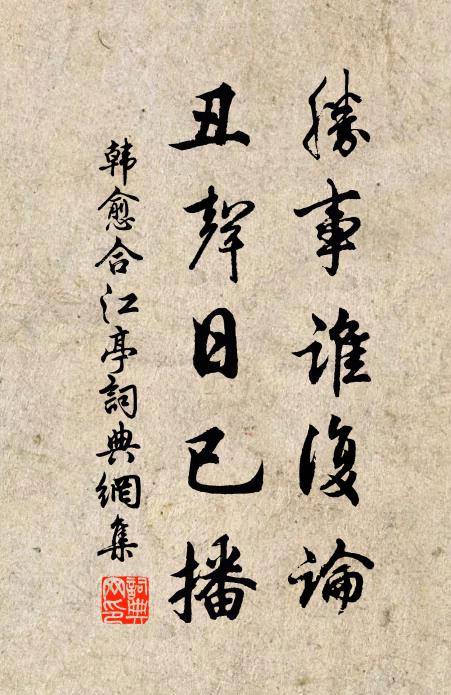 勝事誰復論
丑聲日已播
韩愈合江亭詞典網集
詞典网印